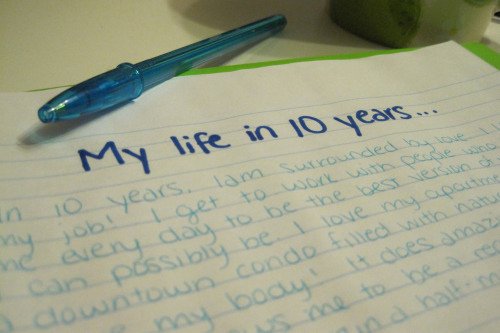 My life in 10 years...
In 10 years, I am surrounded by love. I
my job! I get to work with people who
me every day to be the best version of
I can possibly be. I love my apartment
downtown condo filled with natu
my body! It does amaz
me to be a re
half-